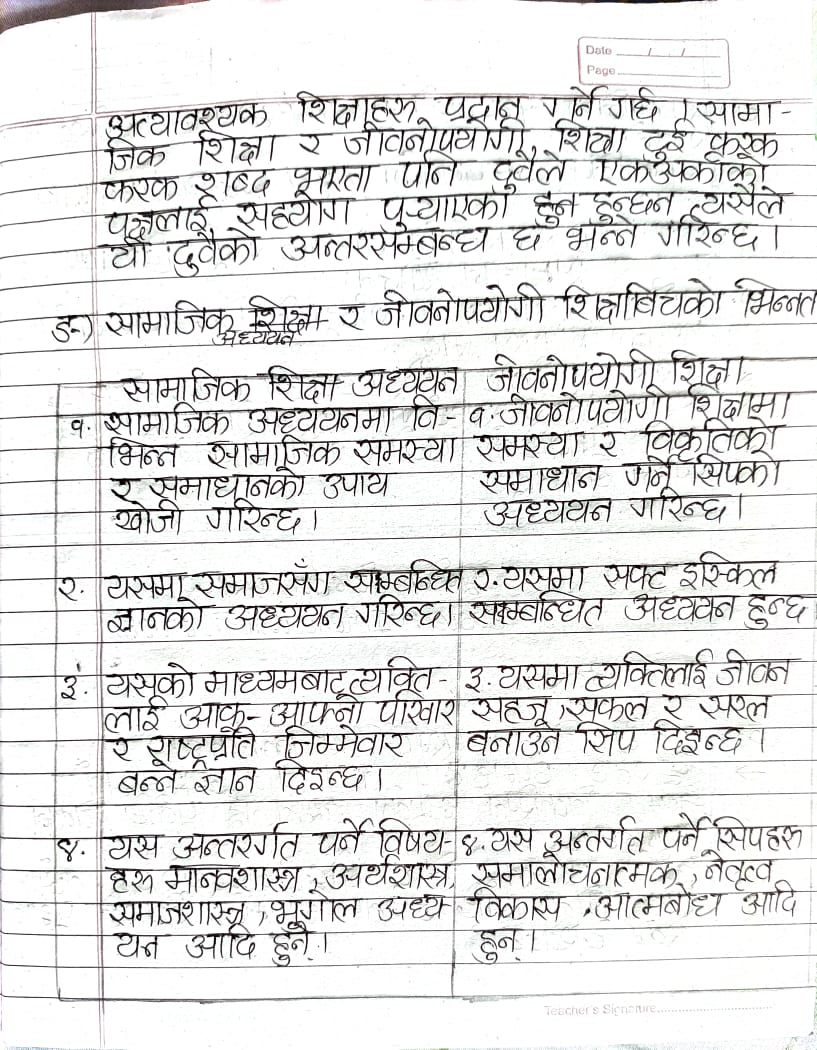 Date / /
Page
अत्यावश्यक शिक्षाहरु प्रदान गर्ने गर्छ । सामा-
जिक शिक्षा र जीवनोपयोगी शिक्षा दुई फरक
फरक शब्द भएता पनि दुवैले एकअर्काको
पक्षलाई सहयोग पुऱ्याएको हुन हुन्छन त्यसैले
यी दुवैको अन्तरसम्बन्ध छ भन्ने गरिन्छ ।
ङ) सामाजिक शिक्षा र जीवनोपयोगी शिक्षाबिचको भिन्नत
अध्ययन
सामाजिक शिक्षा अध्ययन जीवनोपयोगी शिक्षा
१. सामाजिक अध्ययनमा वि-
भिन्न सामाजिक समस्या
र समाधानको उपाय
खोजी गरिन्छ ।
१. जीवनोपयोगी शिक्षामा
समस्या र विकृतिको
समाधान गर्ने सिपको
अध्ययन गरिन्छ ।
२. यसमा समाजसँग सम्बन्धित
ज्ञानको अध्ययन गरिन्छ ।
२. यसमा सफ्ट इस्किल
सम्बन्धित अध्ययन हुन्छ
३. यसको माध्यमबाट व्यक्ति-
लाई आफू- आफ्नो परिवार
र राष्ट्रप्रति जिम्मेवार
बन्न ज्ञान दिइन्छ ।
३. यसमा व्यक्तिलाई जीवन
सहज, सफल र सरल
बनाउने सिप दिइन्छ ।
४. यस अन्तरर्गत पर्ने विषय-
हरु मानवशास्त्र, अर्थशास्त्र,
समाजशास्त्र, भुगोल अध्य
यन आदि हुन् ।
४. यस अन्तर्गत पर्ने सिपहरु
समालोचनात्मक, नेतृत्व
विकास, आत्मबोध आदि
हुन् ।
Teacher's Signature